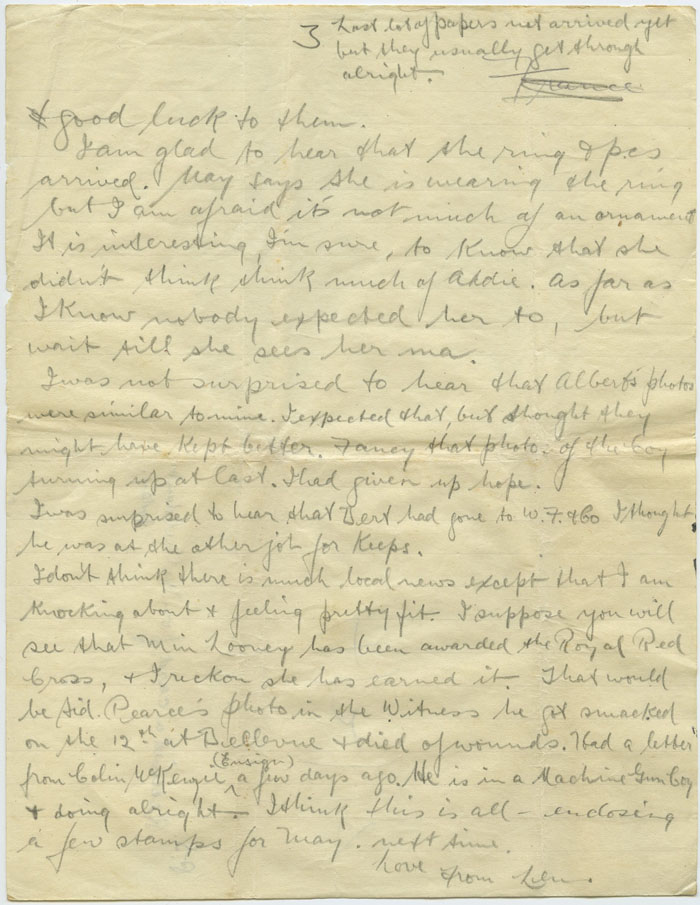 3 Last lot of papers not arrived yet
but they usually get through
alright.
France
& good luck to them.
I am glad to hear that the ring & p.cs
arrived. May says she is wearing the ring
but I am afraid it's not much of an ornament
It is interesting, I'm sure, to know that she
didn't think think much of Addie. As far as
I know nobody expected her to, but
wait till she sees her ma.
I was not surprised to hear that Albert's photos
were similar to mine. I expected that, but thought they
might have kept better. Fancy that photo of the Coy
turning up at last. I had given up hope.
I was surprised to hear that Bert had gone to W. F. & Co I thought
he was at the other job for keeps.
I don't think there is much local news except that I am
knocking about & feeling pretty fit. I suppose you will
see that Min Looney has been awarded the Royal Red
Cross, & I reckon she has earned it. That would
be Sid. Pearce's photo in the Witness he got smacked
on the 12th at Bellevue & died of wounds. Had a letter
(Ensign)
from Colin McKenzie a few days ago. He is in a Machine Gun Coy
& doing alright. I think this is all - enclosing
a few stamps for May. next time.
Love from Len.